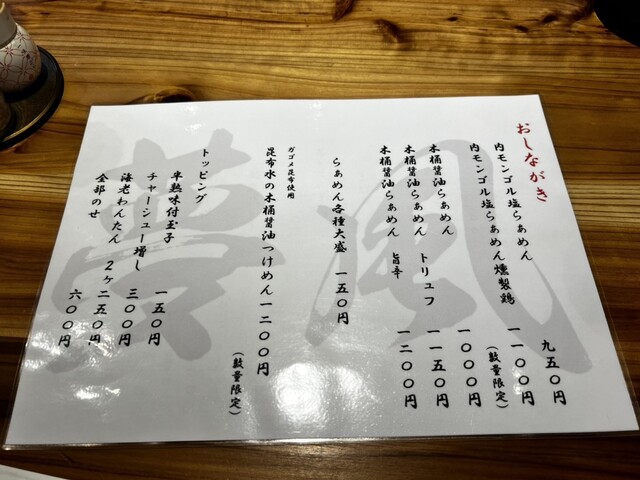 おしながき
内モンゴル塩らぁめん 九五〇円
内モンゴル塩らぁめん燻製鶏 一一〇〇円
(数量限定)
木桶醤油らぁめん 一〇〇〇円
木桶醤油らぁめん トリュフ 一一五〇円
木桶醤油らぁめん 旨辛 一二〇〇円
らぁめん各種大盛 一五〇円
ガゴメ昆布使用
昆布水の木桶醤油つけめん一二〇〇円
(数量限定)
トッピング
半熟味付玉子 一五〇円
チャーシュー増し 三〇〇円
海老わんたん 2ヶ二五〇円
全部のせ 六〇〇円
風夢